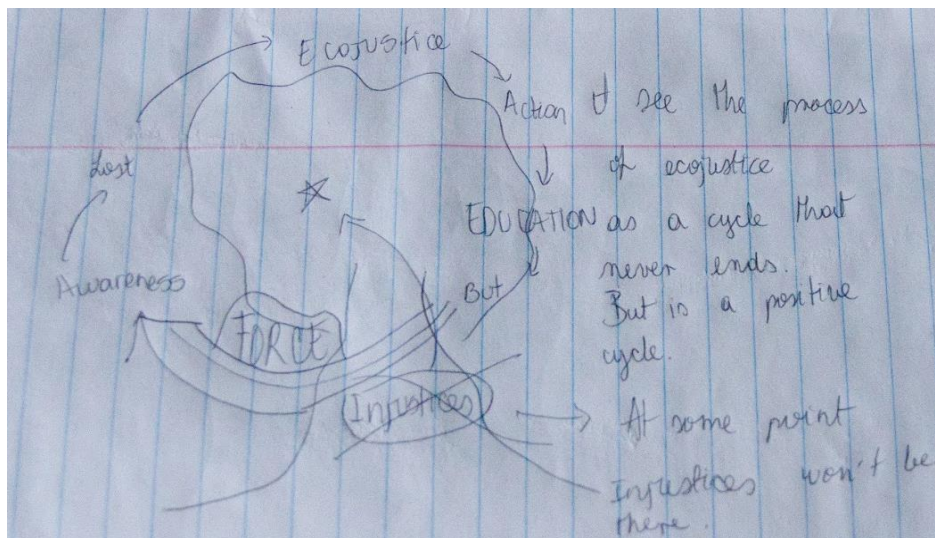 Ecojustice
Action
EDUCATION
But
Injustices
FORCE
Awareness
Lost
I see the process
of ecojustice
as a cycle that
never ends.
But is a positive
cycle.
At some point
Injustices won't be
there.